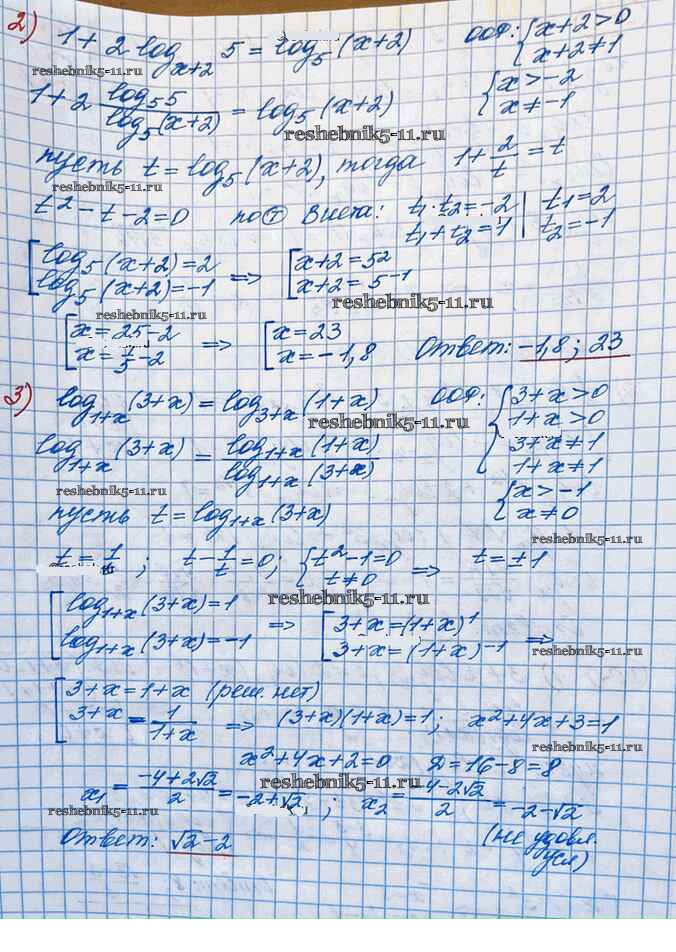 2) 1 + 2 log_{x+2} 5 = log_5 (x+2) ООФ: { x+2>0
x+2≠1
reshebnik5-11.ru
1+2 log_5 5 / log_5 (x+2) = log_5 (x+2) { x>-2
x≠-1
reshebnik5-11.ru
пусть t = log_5 (x+2), тогда 1+ 2/t = t
reshebnik5-11.ru
t² - t - 2 = 0 по т Виета: t₁·t₂ = -2 | t₁ = 2
t₁+t₂ = 1 | t₂ = -1
[ log_5 (x+2) = 2 => [ x+2 = 5²
log_5 (x+2) = -1 x+2 = 5^{-1}
reshebnik5-11.ru
reshebnik5-11.ru
[ x = 25-2 => [ x = 23
x = 1/5 - 2 x = -1,8 Ответ: -1,8; 23
3) log_{1+x} (3+x) = log_{3+x} (1+x) ООФ: { 3+x>0
1+x>0
3+x≠1
1+x≠1
reshebnik5-11.ru
log_{1+x} (3+x) = log_{1+x} (1+x) / log_{1+x} (3+x)
reshebnik5-11.ru
{ x>-1
x≠0
пусть t = log_{1+x} (3+x)
reshebnik5-11.ru
t = 1/t ; t - 1/t = 0; { t²-1=0 => t = ±1
t≠0
reshebnik5-11.ru
reshebnik5-11.ru
[ log_{1+x} (3+x) = 1 => [ 3+x = (1+x)^1
log_{1+x} (3+x) = -1 3+x = (1+x)^{-1} =>
reshebnik5-11.ru
reshebnik5-11.ru
[ 3+x = 1+x (реш. нет)
3+x = 1/(1+x) => (3+x)(1+x) = 1; x²+4x+3=1
x²+4x+2=0 D=16-8=8
reshebnik5-11.ru
x₁ = (-4+2√2)/2 = -2+√2 ; x₂ = (-4-2√2)/2 = -2-√2
reshebnik5-11.ru
(не удовл.
усл)
Ответ: √2-2
reshebnik5-11.ru